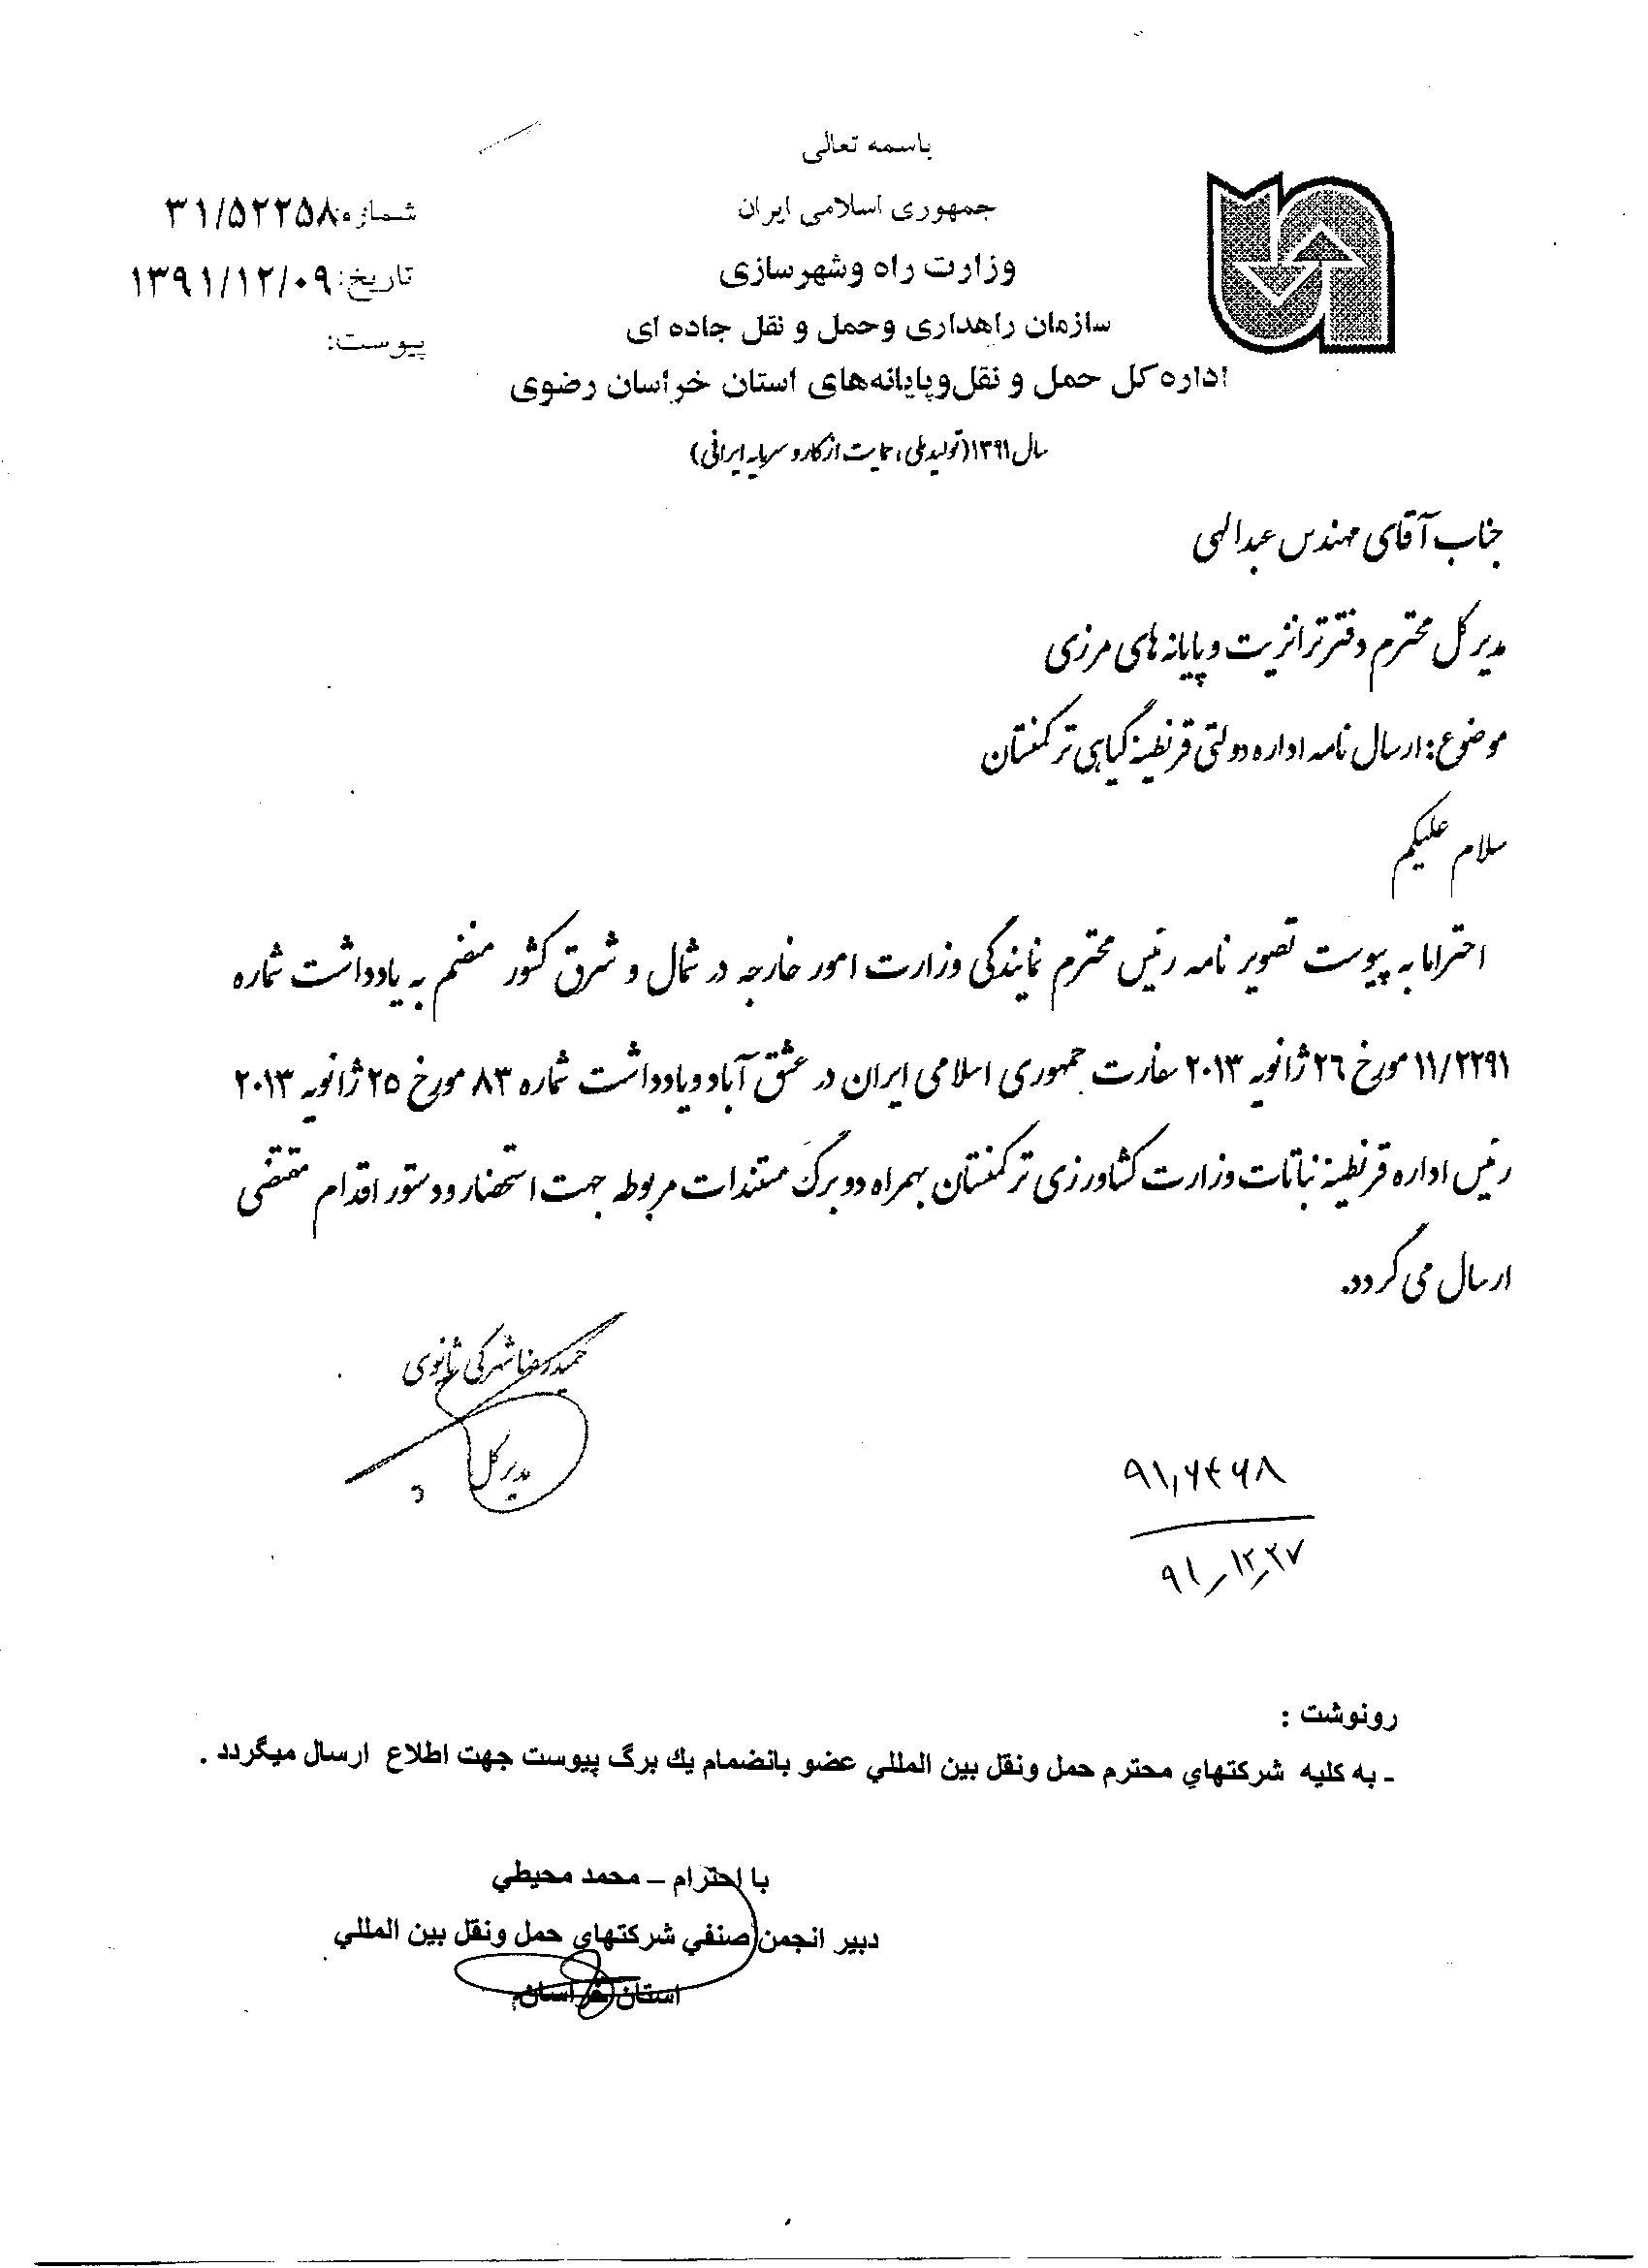 باسمه تعالی
جمهوری اسلامی ایران
وزارت راه وشهرسازی
سازمان راهداری وحمل و نقل جاده ای
اداره کل حمل و نقل وپایانه‌های استان خراسان رضوی
سال ۱۳۹۱(تولید ملی ، حمایت از کار و سرمایه ایرانی)
شماره: ۳۱/۵۲۲۵۸
تاریخ: ۱۳۹۱/۱۲/۰۹
پیوست:
جناب آقای مهندس عبدالهی
مدیر کل محترم دفتر ترانزیت و پایانه های مرزی
موضوع: ارسال نامه اداره دولتی قرنطینه گیاهی ترکمنستان
سلام علیکم
احتراما به پیوست تصویر نامه رئیس محترم نمایندگی وزارت امور خارجه در شمال و شرق کشور منضم به یادداشت شماره
۱۱/۲۲۹۱ مورخ ۲۶ ژانویه ۲۰۱۳ سفارت جمهوری اسلامی ایران در عشق آباد و یادداشت شماره ۸۳ مورخ ۲۵ ژانویه ۲۰۱۳
رئیس اداره قرنطینه نباتات وزارت کشاورزی ترکمنستان بهمراه دو برگ مستندات مربوطه جهت استحضار و دستور اقدام مقتضی
ارسال می گردد.
حمیدرضا شهرکی ثانوی
مدیر کل
۹۱٫۶۴۶۸
۹۱-۱۲-۲۷
رونوشت :
ـ به کلیه شرکتهاي محترم حمل ونقل بین المللي عضو بانضمام یك برگ پیوست جهت اطلاع ارسال میگردد .
با احترام – محمد محیطي
دبیر انجمن صنفي شرکتهاي حمل ونقل بین المللي
استان خراسان